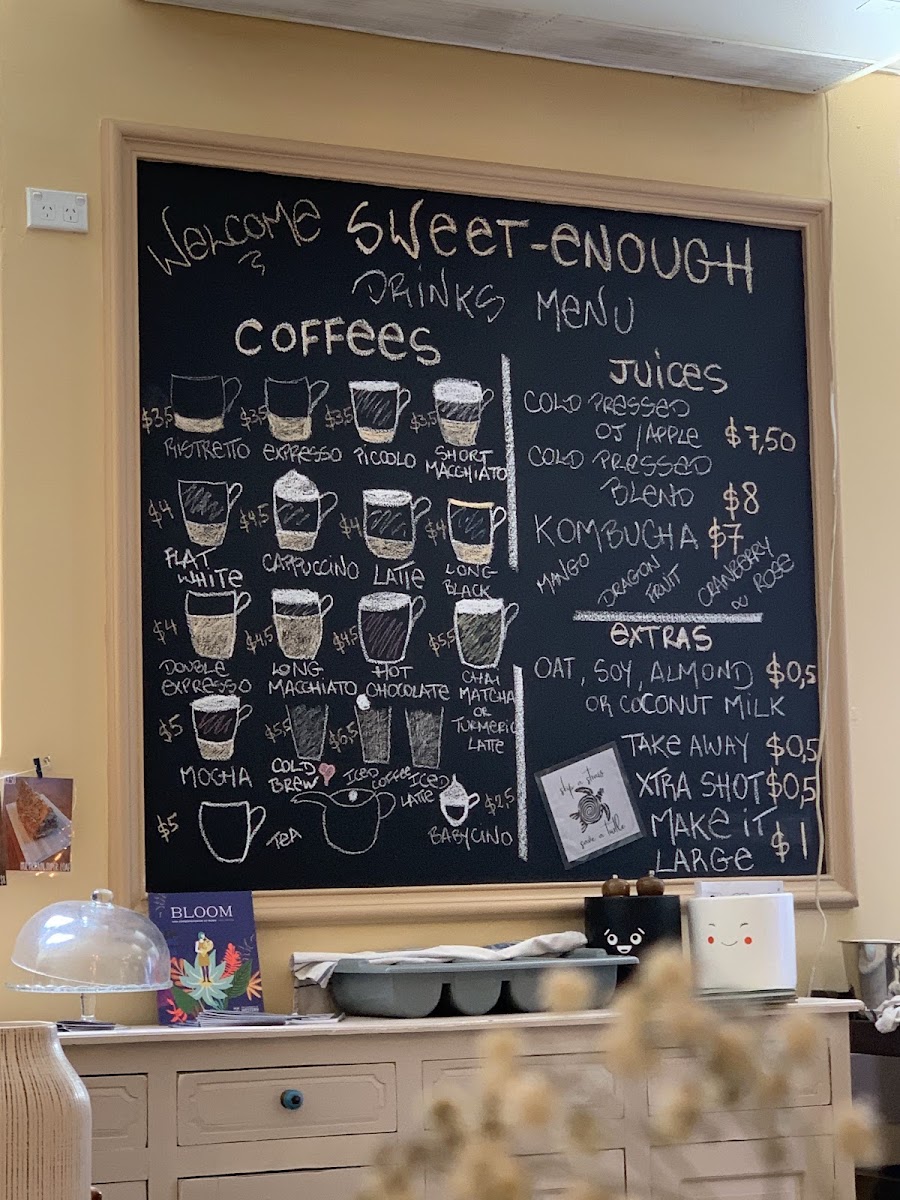 Welcome
SWeeT-eNOUGH
DRINKS MeNU
COFFees
$3,5
RISTReTTO
$3,5
eXPReSSO
$3,5
PICCOLO
$3,5
SHORT
MACCHIATO
$4
FLAT
WHITE
$4,5
CAPPUCCINO
$4
LATTe
$4
LONG
BLACK
$4
DOUBLe
eXPReSSO
$4,5
LONG
MACCHIATO
$4,5
HOT
CHOCOLATe
$5,5
CHAI
MATCHA
OR
TURMeRIC
LATTe
$5
MOCHA
$5,5
COLD
BReW
$6,5
ICeD COFFee
ICeD
LATTe
$5
TeA
BABYCINO
$2,5
JUICeS
COLD PReSSeD
OJ / APPLe $7,50
COLD PReSSeD
BLeND $8
KOMBUCHA $7
MANGO
DRAGON
FRUIT
CRANBeRRY
ROSe
eXTRAS
OAT, SOY, ALMOND $0,5
OR COCONUT MILK
TAKe AWAY $0,5
XTRA SHOT $0,5
MAKe IT
LARGe $1
skip a straw
save a turtle
BLOOM